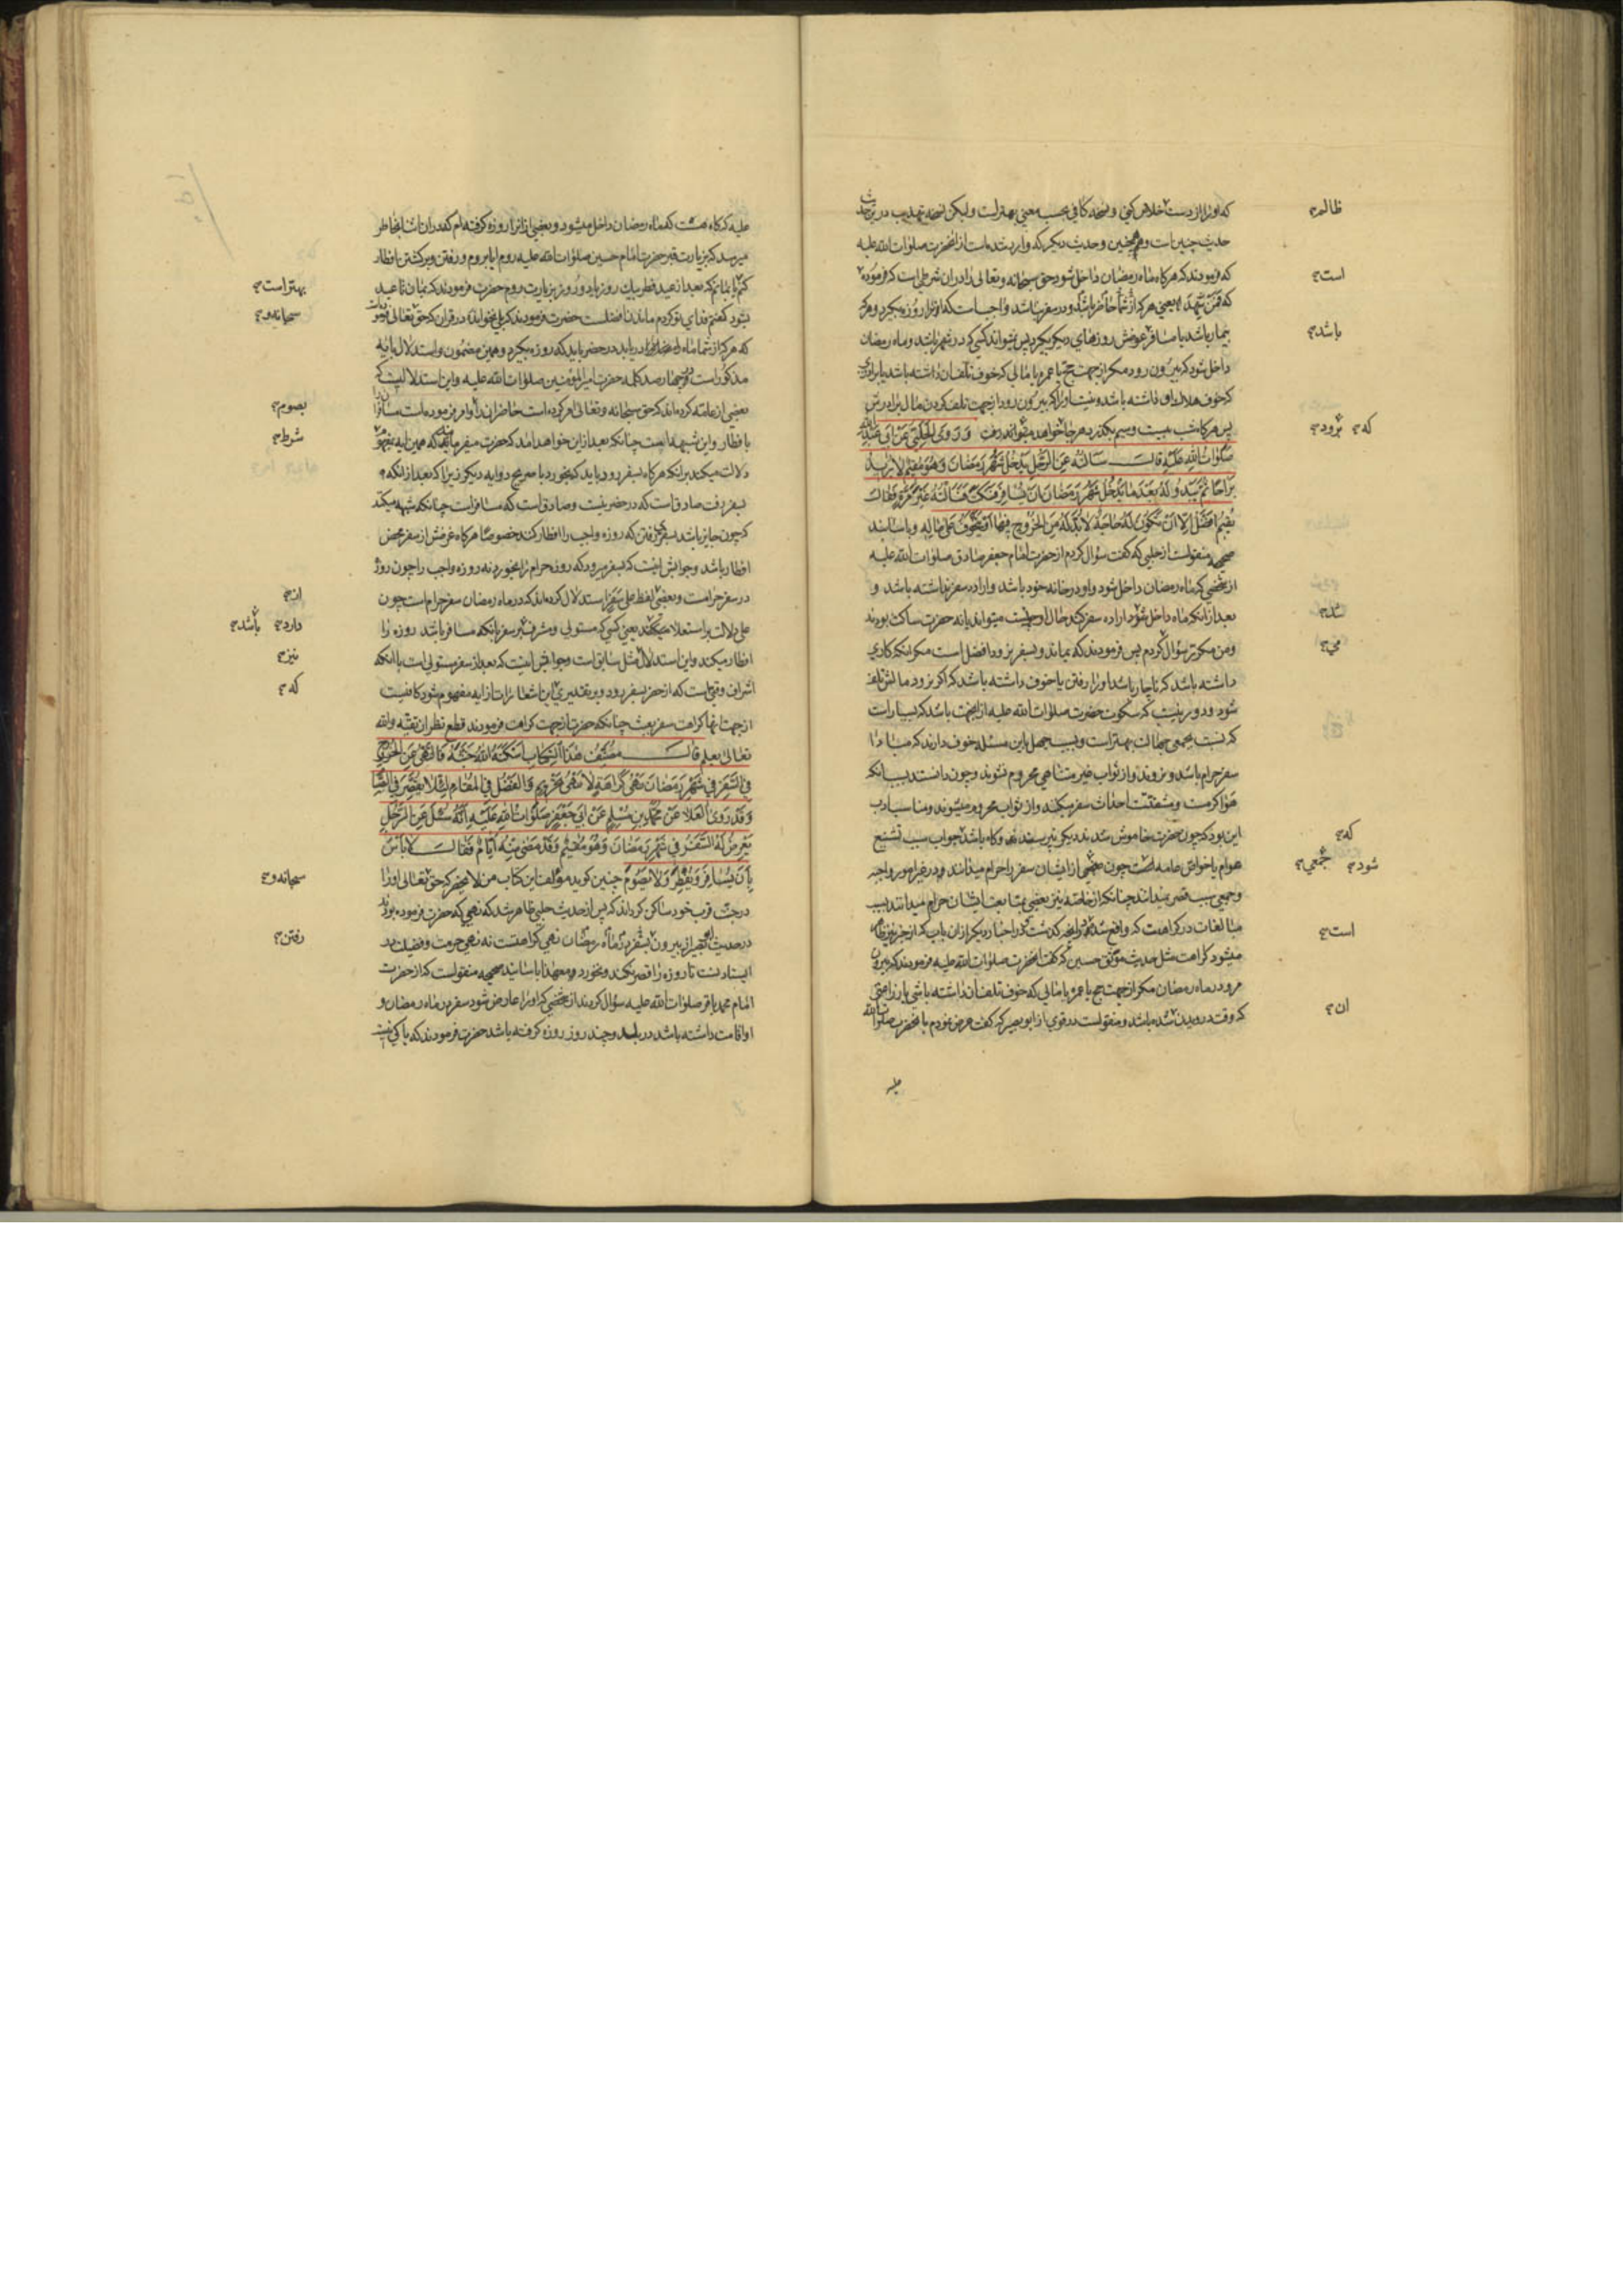 که او را از دست خلاص کنی و نسخه کافی بحسب معنی بهتر است و لیکن نسخه تهذیب در
حدیث چنین است و همچنین و حدیث دیگر که وارد شده است از انحضرت صلوات الله علیه
که فرمودند که هرگاه ماه رمضان داخل شود حق سبحانه و تعالی را در ان شرطی است که فرموده
که فمن شهد یعنی هر که از شما حاضر باشد و در سفر نباشد واجب است که او را روزه بگیرد و هر که
بیمار باشد یا مسافر عوضش روزهای دیگر بگیرد پس نمیتواند کسی که در شهر باشد و ماه رمضان
داخل شود که بیرون رود مگر از جهت حج یا عمره یا مالی که خوف تلف ان داشته باشد یا برادری
که خوف هلاک او داشته باشد و نیست او را که بیرون رود از جهت تلف کردن مال برادرش
پس هرگاه شب بیست و سیم بگذرد هر جا خواهد میتواند رفت وَ رَوَی الحَلَبِی عَن اَبی عَبدِالله
صَلَواتُ اللهِ عَلَیهِ قالَ سَاَلتُهُ عَنِ الرَّجُلِ یَدخُلُ شَهرُ رَمَضانَ وَ هُوَ مُقیمٌ لا یُریدُ
بَراحًا ثُمَّ یَبدُو لَهُ بَعدَ ما یَدخُلُ شَهرُ رَمَضانَ اَن یُسافِرَ فَسَکَتَ فَسَاَلتُهُ غَیرَ مَرَّةٍ فَقالَ
یُقیمُ اَفضَلُ اِلّا اَن تَکُونَ لَهُ حاجَةٌ لا بُدَّ لَهُ مِنَ الخُرُوجِ فیها اَو یَتَخَوَّفُ عَلی مالِهِ و باسانید
صحیحه منقولست از حلبی که گفت سؤال کردم از حضرت امام جعفر صادق صلوات الله علیه
از شخصی که ماه رمضان داخل شود و او در خانه خود باشد و اراده سفر نداشته باشد و
بعد از انکه ماه داخل شود اراده سفر کند حال او چیست میتواند یا نه حضرت ساکت بودند
و من مکرر سؤال کردم پس فرمودند که بماند و بسفر نرود افضل است مگر انکه کاری
داشته باشد که ناچار باشد او را رفتن یا خوف داشته باشد که اگر نرود مالش تلف
شود و دور نیست که سکوت حضرت صلوات الله علیه از انجهت باشد که بسیار است
که نسبت بجمعی جهالت بهتر است و بسبب جهل باین مسئله خوف دارند که مبادا
سفر حرام باشد و نروند و از ثواب غیر متناهی محروم نشوند و چون دانستند بسبب انکه
هوا گرمست و مشقتست احداث سفر میکنند و از ثواب محروم میشوند و مناسب ادب
این بود که چون حضرت خاموش شدند دیگر نپرسند و گاه باشد جواب سبب تشنیع
عوام یا خواص عامه است چون جمعی از ایشان سفر را حرام میدانند و در غیر امور واجبه
و جمعی سبب قصر نمیدانند چنانکه از خاصه نیز بعضی بمتابعت ایشان حرام میدانند بسبب
مبالغات در کراهت که واقع شده و انچه گذشت و در اخبار دیگر از ان باب که از خبر نیز ظاهر
میشود کراهت مثل حدیث موثق حسین که گفت انحضرت صلوات الله علیه فرمودند که بیرون
مرو در ماه رمضان مگر از جهت حج یا عمره یا مالی که خوف تلف ان داشته باشی یا زراعتی
که وقت درویدن شده باشد و منقولست در قوی از ابو بصیر که گفت عرض نمودم بانحضرت صلوات الله
علیه
ظالم
است
باشد
که برود
شد
می
که
شود جمعی
است
ان
علیه که گاه هست که ماه رمضان داخل میشود و بعضی از انرا روزه گرفته‌ام که در ان اثنا بخاطر
میرسد که بزیارت قبر حضرت امام حسین صلوات الله علیه روم ایا بروم و رفتن و برگشتن افطار
کنم یا بمانم که بعد از عید فطر بیک روز یا دو روز بزیارت روم حضرت فرمودند که بمان تا عید
بشود گفتم فدای تو گردم ماندن افضلست حضرت فرمودند که بلی نخوانده در قران که حق تعالی فرموده
که هر که از شما ماه رمضان را دریابد در حضر باید که روزه بگیرد و همین مضمون و استدلال بایه
مذکور است در چهار صد کلمه حضرت امیر المؤمنین صلوات الله علیه و این استدلالیست که
بعضی از عامه کرده‌اند که حق سبحانه و تعالی امر کرده است حاضرانرا و امر فرموده است مسافر را
بافطار و این شبهه است چنانکه بعد ازین خواهد امد که حضرت میفرماید که همین ایه بمفهوم
دلالت میکند بر انکه هرگاه بسفر رود باید که بخورد یا صریح دو ایه دیگر زیرا که بعد از انکه
بسفر رفت صادق است که در حضر نیست و صادق است که مسافر است چنانکه شبهه میکند
که چون جایز باشد بسفر رفتن که روزه واجب را افطار کند خصوصا هرگاه غرضش از سفر محض
افطار باشد و جوابش اینست که بسفر میرود که روزه حرام را بخورد نه روزه واجب را چون روزه
در سفر حرامست و بعضی لفظ علی سفر استدلال کرده‌اند که در ماه رمضان سفر حرام است چون
علی دلالت بر استعلا میکند یعنی کسی که مستولی و مشرف بر سفر بانکه مسافر باشد روزه را
افطار میکند و این استدلال مثل سابق است و جوابش اینست که بعد از سفر مستولی است با انکه
اشراف وقتی است که از حضر بسفر رود و بر تقدیری این اشعارات از ایه مفهوم شود کافیست
از جهت انها کراهت سفر بعث چنانکه حضرت از جهت کراهت فرمودند قطع نظر از تقیه والله
تعالی یعلم قالَ مُصَنِّفُ هٰذَا الکِتابِ اَسکَنَهُ اللهُ جَنَّتَهُ فَالنَّهیُ عَنِ الخُرُوجِ
فِی السَّفَرِ فی شَهرِ رَمَضانَ نَهیُ کَراهَةٍ لا نَهیُ تَحریمٍ وَ الفَضلُ فِی المُقامِ لِئَلّا یُقَصِّرَ فِی الصِّیامِ
وَ قَد رَوَی العَلاءُ عَن مُحَمَّدِ بنِ مُسلِمٍ عَن اَبی جَعفَرٍ صَلَواتُ اللهِ عَلَیهِ اَنَّهُ سُئِلَ عَنِ الرَّجُلِ
یَعرِضُ لَهُ السَّفَرُ فی شَهرِ رَمَضانَ وَ هُوَ مُقیمٌ وَ قَد مَضی مِنهُ اَیّامٌ فَقالَ لا بَأسَ
بِاَن یُسافِرَ وَ یُفطِرَ وَ لا یَصُومَ چنین گوید مؤلف این کتاب من لا یحضر که حق تعالی او را
در جنت قرب خود ساکن گرداند که پس از حدیث حلبی ظاهر شد که نهیی که حضرت فرموده بودند
در حدیث ابو بصیر از بیرون بسفر در ماه رمضان نهی کراهتست نه نهی حرمت و فضیلت در
ایستادنست تا روزه را قصر نکند و نخورد و معهذا باسانید صحیحه منقولست که از حضرت
امام محمد باقر صلوات الله علیه سؤال کردند از شخصی که او را عارض شود سفر در ماه رمضان و
او اقامت داشته باشد در بلد و چند روز روزه گرفته باشد حضرت فرمودند که باکی نیست
بهتر است
سبحانه و
بصوم
شرط
اند
دارد باشد
نیز
که
سبحانه و
رفتن